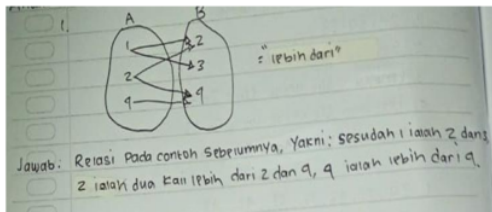 1.
A B
1 2
3 = "lebih dari"
2
4 4
Jawab: Relasi Pada contoh Sebelumnya, Yakni: sesudah 1 ialah 2 dan 3
2 ialah dua kali lebih dari 2 dan 4, 4 ialah lebih dari 4.